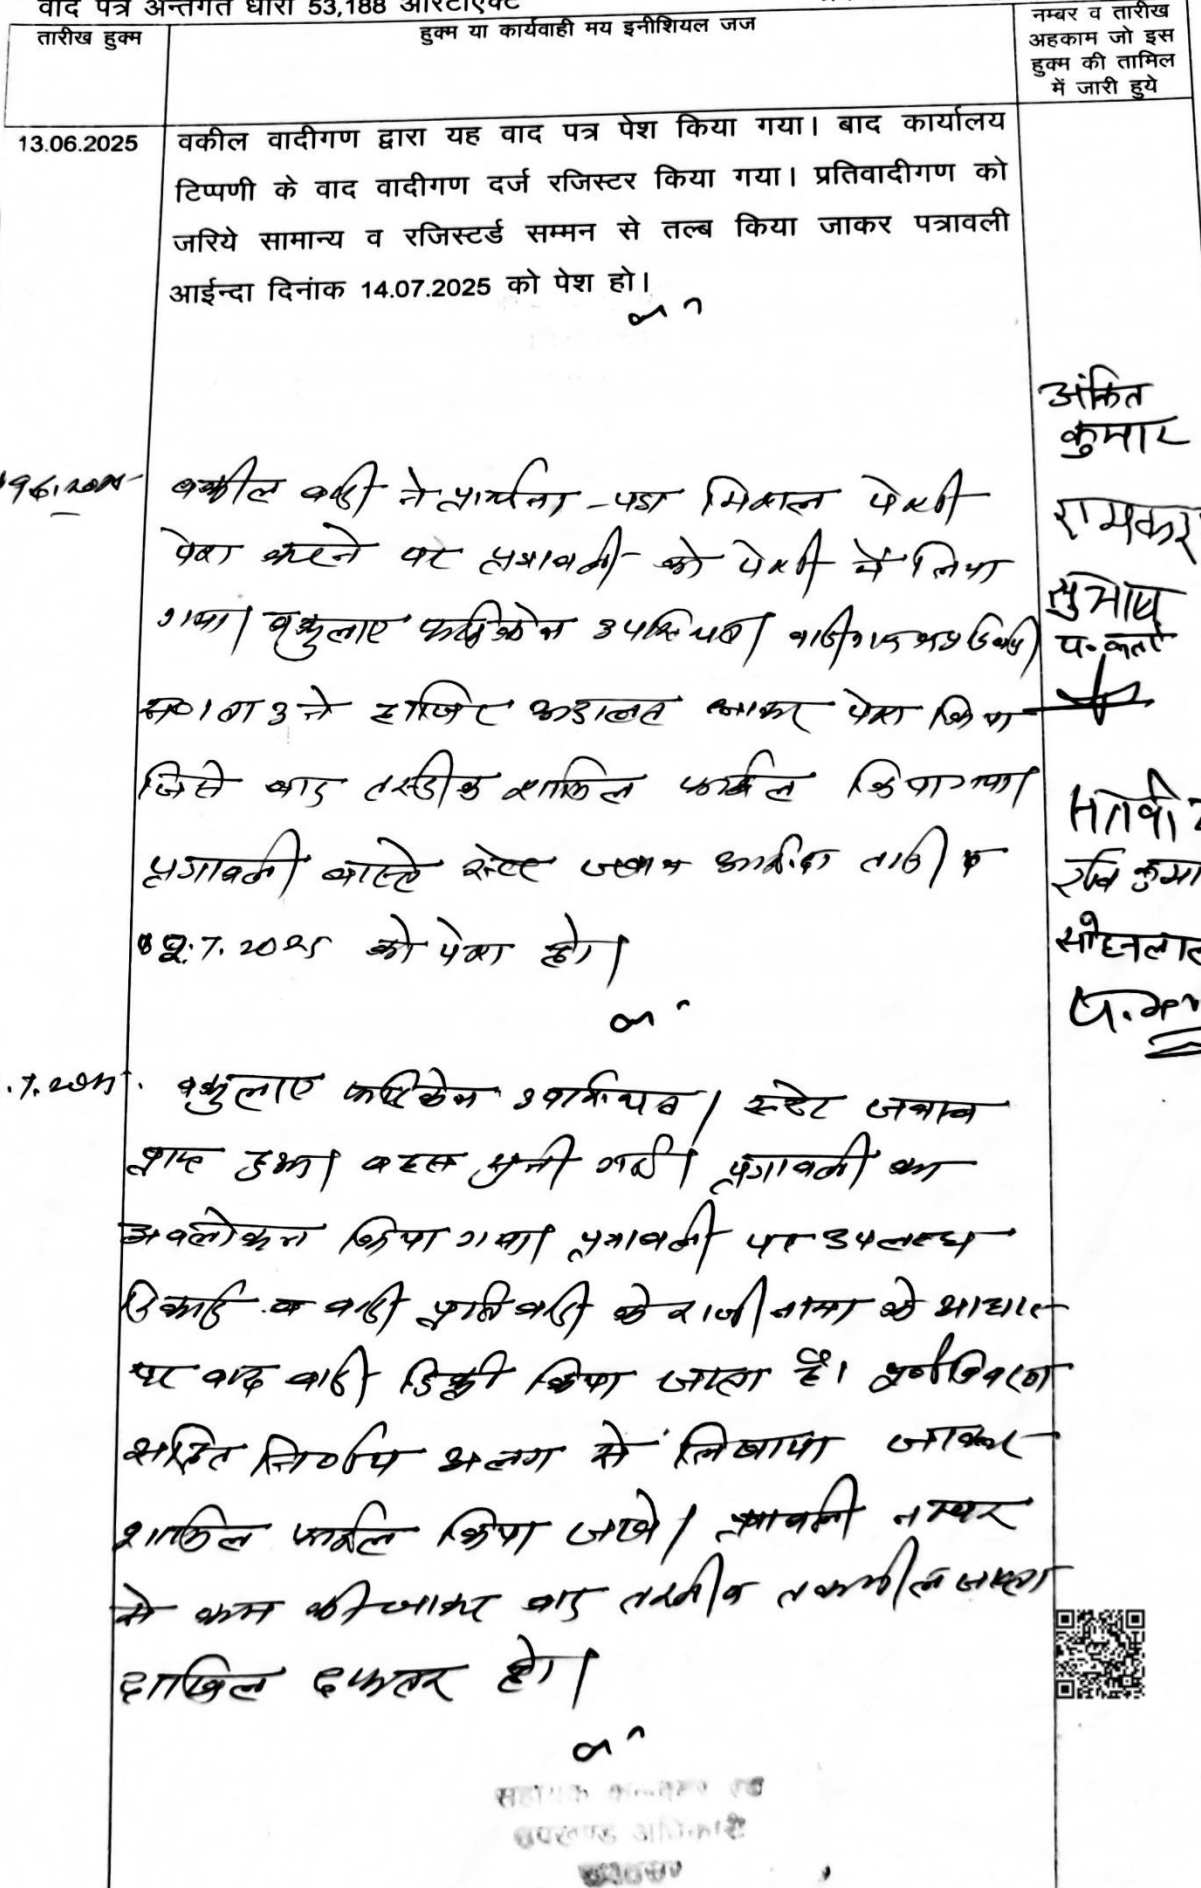 वाद पत्र अन्तर्गत धारा 53,188 आरटीएक्ट
तारीख हुक्म
हुक्म या कार्यवाही मय इनीशियल जज
नम्बर व तारीख
अहकाम जो इस
हुक्म की तामिल
में जारी हुये
13.06.2025
वकील वादीगण द्वारा यह वाद पत्र पेश किया गया। बाद कार्यालय
टिप्पणी के वाद वादीगण दर्ज रजिस्टर किया गया। प्रतिवादीगण को
जरिये सामान्य व रजिस्टर्ड सम्मन से तल्ब किया जाकर पत्रावली
आईन्दा दिनांक 14.07.2025 को पेश हो।
अंकित
कुमार
वकील वादी ने प्रार्थना-पत्र मिसल पेशी
रामकर
पेश करने पर पत्रावली को पेशी में लिया
सुभाष
गया। वकुलाए फरिकेन उपस्थित।
1 ता 3 ने हाजिर अदालत आकर पेश किया
जिसे बाद तस्दीक शामिल फाईल किया गया।
पत्रावली वास्ते स्टेट जवाब आईन्दा तारीख
रवि कुमा
7.2025 को पेश हो।
सोहनलाल
वकुलाए फरिकेन उपस्थित। स्टेट जवाब
प्राप्त हुआ। बहस सुनी गई। पत्रावली का
अवलोकन किया गया। पत्रावली पर उपलब्ध
रिकार्ड व वादी प्रतिवादी के राजीनामा के आधार
पर वाद वादी डिक्री किया जाता है। पूर्ण विवरण
सहित निर्णय अलग से लिखाया जाकर
शामिल फाईल किया जावे। पत्रावली नम्बर
से कम की जाकर बाद तकमील जाब्ता
दाखिल दफ्तर हो।
सहायक कलक्टर एवं
उपखण्ड अधिकारी